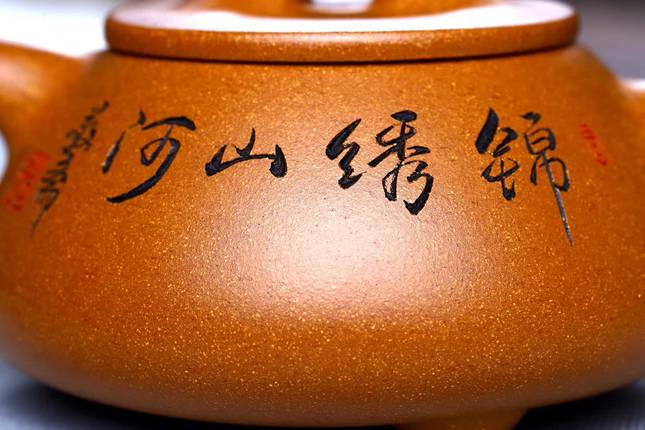 锦绣山河